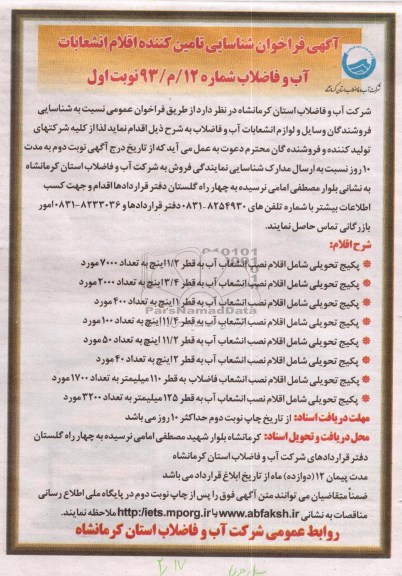 آگهی فراخوان شناسایی تامین کننده اقلام انشعابات
آب و فاضلاب شماره ۹۳/م/۱۲ نوبت اول
شرکت آب و فاضلاب استان کرمانشاه
شرکت آب و فاضلاب استان کرمانشاه در نظر دارد از طریق فراخوان عمومی نسبت به شناسایی
فروشندگان وسایل و لوازم انشعابات آب و فاضلاب به شرح ذیل اقدام نماید لذا از کلیه شرکتهای
تولید کننده و فروشنده گان محترم دعوت به عمل می آید که از تاریخ درج آگهی نوبت دوم به مدت
۱۰ روز نسبت به ارسال مدارک شناسایی نمایندگی فروش به شرکت آب و فاضلاب استان کرمانشاه
به نشانی بلوار مصطفی امامی نرسیده به چهار راه گلستان دفتر قراردادها اقدام و جهت کسب
اطلاعات بیشتر با شماره تلفن های ۸۲۵۴۹۳۰-۰۸۳۱ دفتر قراردادها و ۸۲۳۳۰۳۶-۰۸۳۱ امور
بازرگانی تماس حاصل نمایند.
شرح اقلام:
پکیج تحویلی شامل اقلام نصب انشعاب آب به قطر ۱/۲ اینچ به تعداد ۷۰۰۰ مورد
پکیج تحویلی شامل اقلام نصب انشعاب آب به قطر ۳/۴ اینچ به تعداد ۲۰۰۰ مورد
پکیج تحویلی شامل اقلام نصب انشعاب آب به قطر ۱ اینچ به تعداد ۴۰۰ مورد
پکیج تحویلی شامل اقلام نصب انشعاب آب به قطر ۱۱/۴ اینچ به تعداد ۱۰۰ مورد
پکیج تحویلی شامل اقلام نصب انشعاب آب به قطر ۱۱/۲ اینچ به تعداد ۵۰ مورد
پکیج تحویلی شامل اقلام نصب انشعاب آب به قطر ۲ اینچ به تعداد ۴۰ مورد
پکیج تحویلی شامل اقلام نصب انشعاب فاضلاب به قطر ۱۱۰ میلیمتر به تعداد ۱۷۰۰ مورد
پکیج تحویلی شامل اقلام نصب انشعاب آب به قطر ۱۲۵ میلیمتر به تعداد ۳۲۰۰ مورد
ParsNamadData
مهلت دریافت اسناد: از تاریخ چاپ نوبت دوم حداکثر ۱۰ روز می باشد
محل دریافت و تحویل اسناد: کرمانشاه بلوار شهید مصطفی امامی نرسیده به چهار راه گلستان
دفتر قراردادهای شرکت آب و فاضلاب استان کرمانشاه
مدت پیمان ۱۲(دوازده) ماه از تاریخ ابلاغ قرارداد می باشد
ضمنا متقاضیان می توانند متن آگهی فوق را پس از چاپ نوبت دوم در پایگاه ملی اطلاع رسانی
مناقصات به نشانی www.abfaksh.ir یا http:/iets.mporg.ir ملاحظه نمایند.
روابط عمومی شرکت آب و فاضلاب استان کرمانشاه